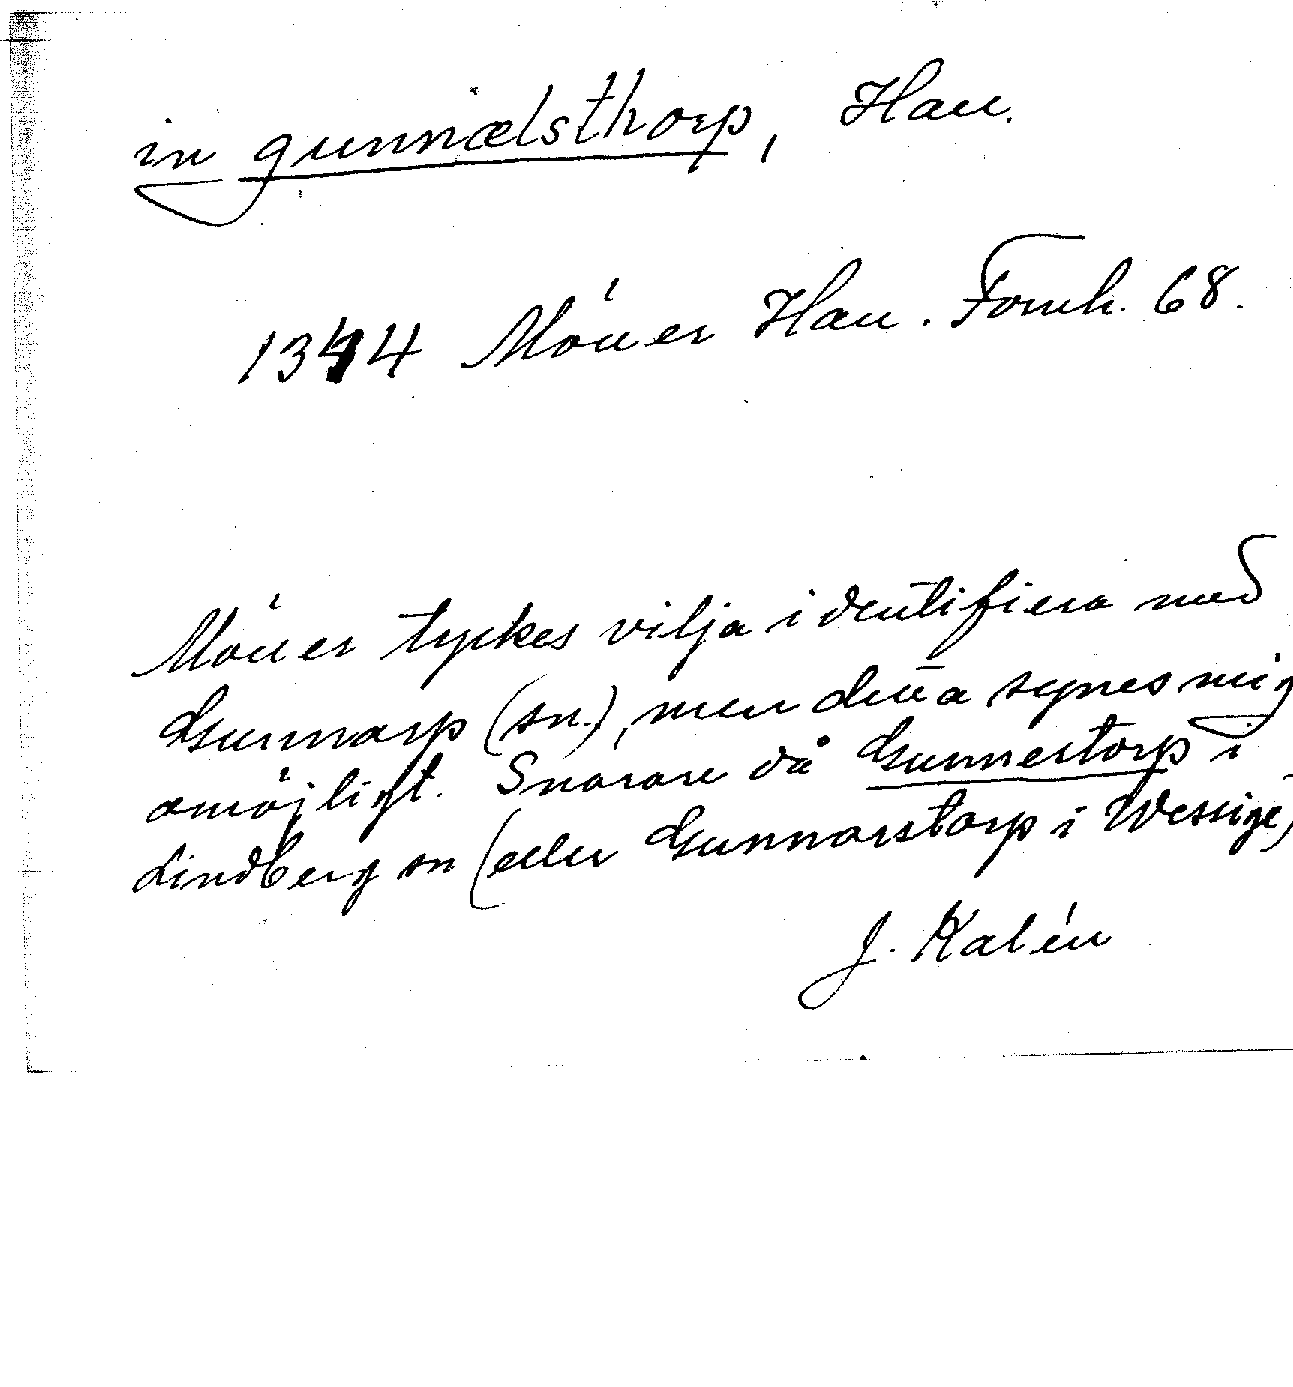 in gunnælsthorp, Hall.
1344 Möller Hall. Fornh. 68.
Möller tyckes vilja identifiera med
Gunnarp (sn.), men detta synes mig
omöjligt. Snarare då Gunnestorp i
Lindberg sn (eller Gunnarstorp i Wessige)
J. Kalén